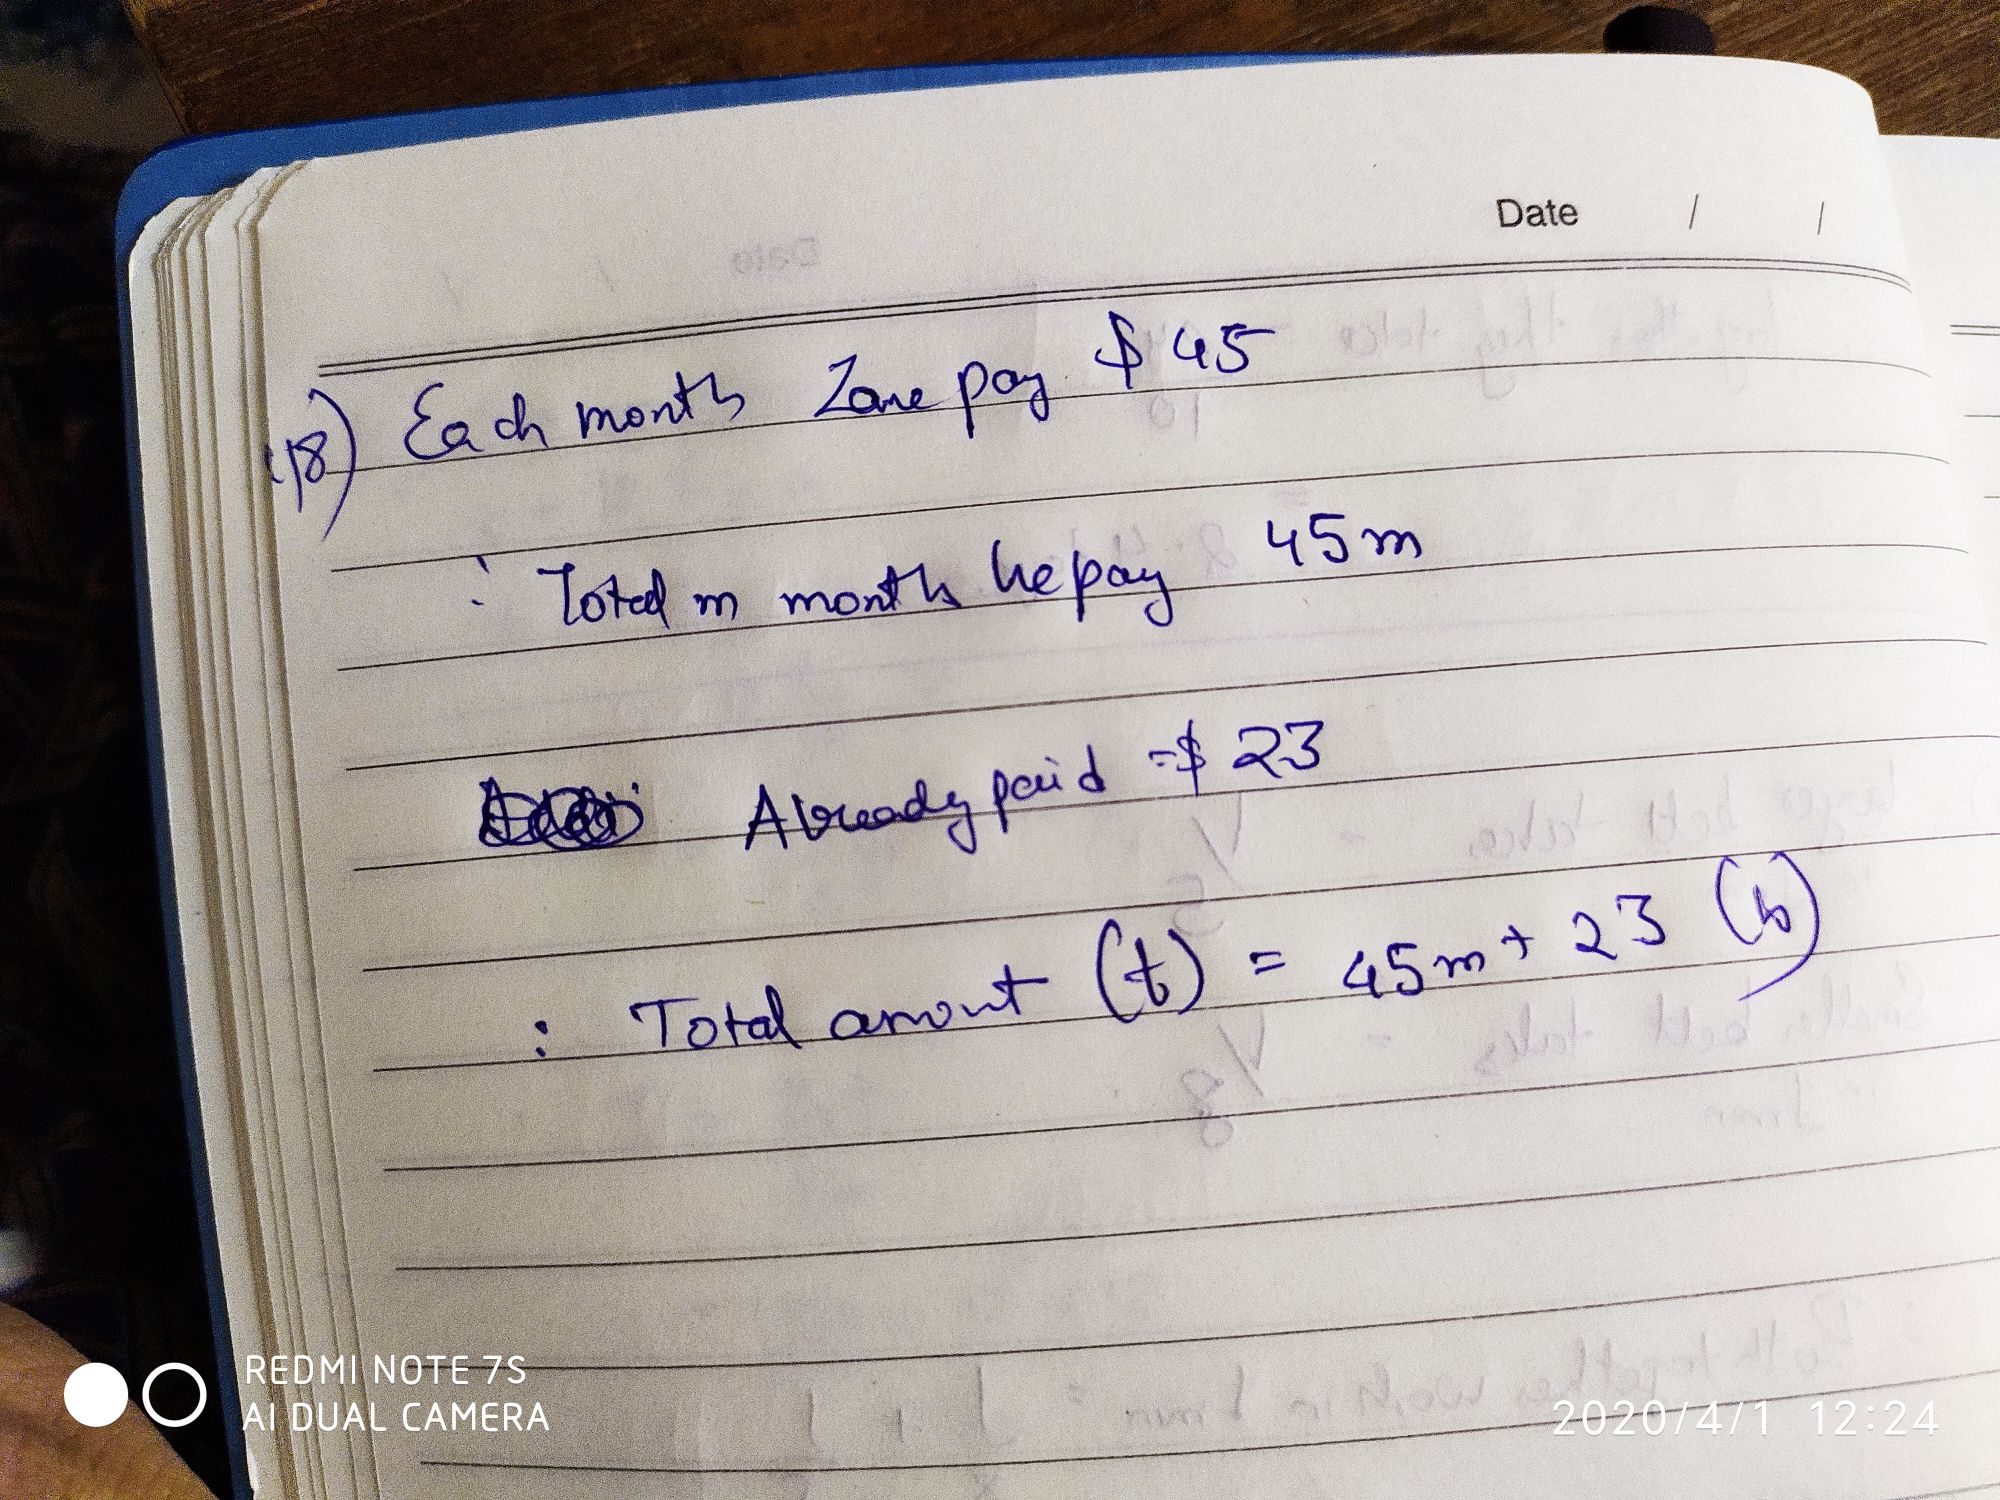 Date / /
18) Each month Zane pay $ 45
∴ Total m month he pay 45m
Already paid = $ 23
: Total amount (t) = 45m + 23 (b)
REDMI NOTE 7S
AI DUAL CAMERA
2020/4/1 12:24